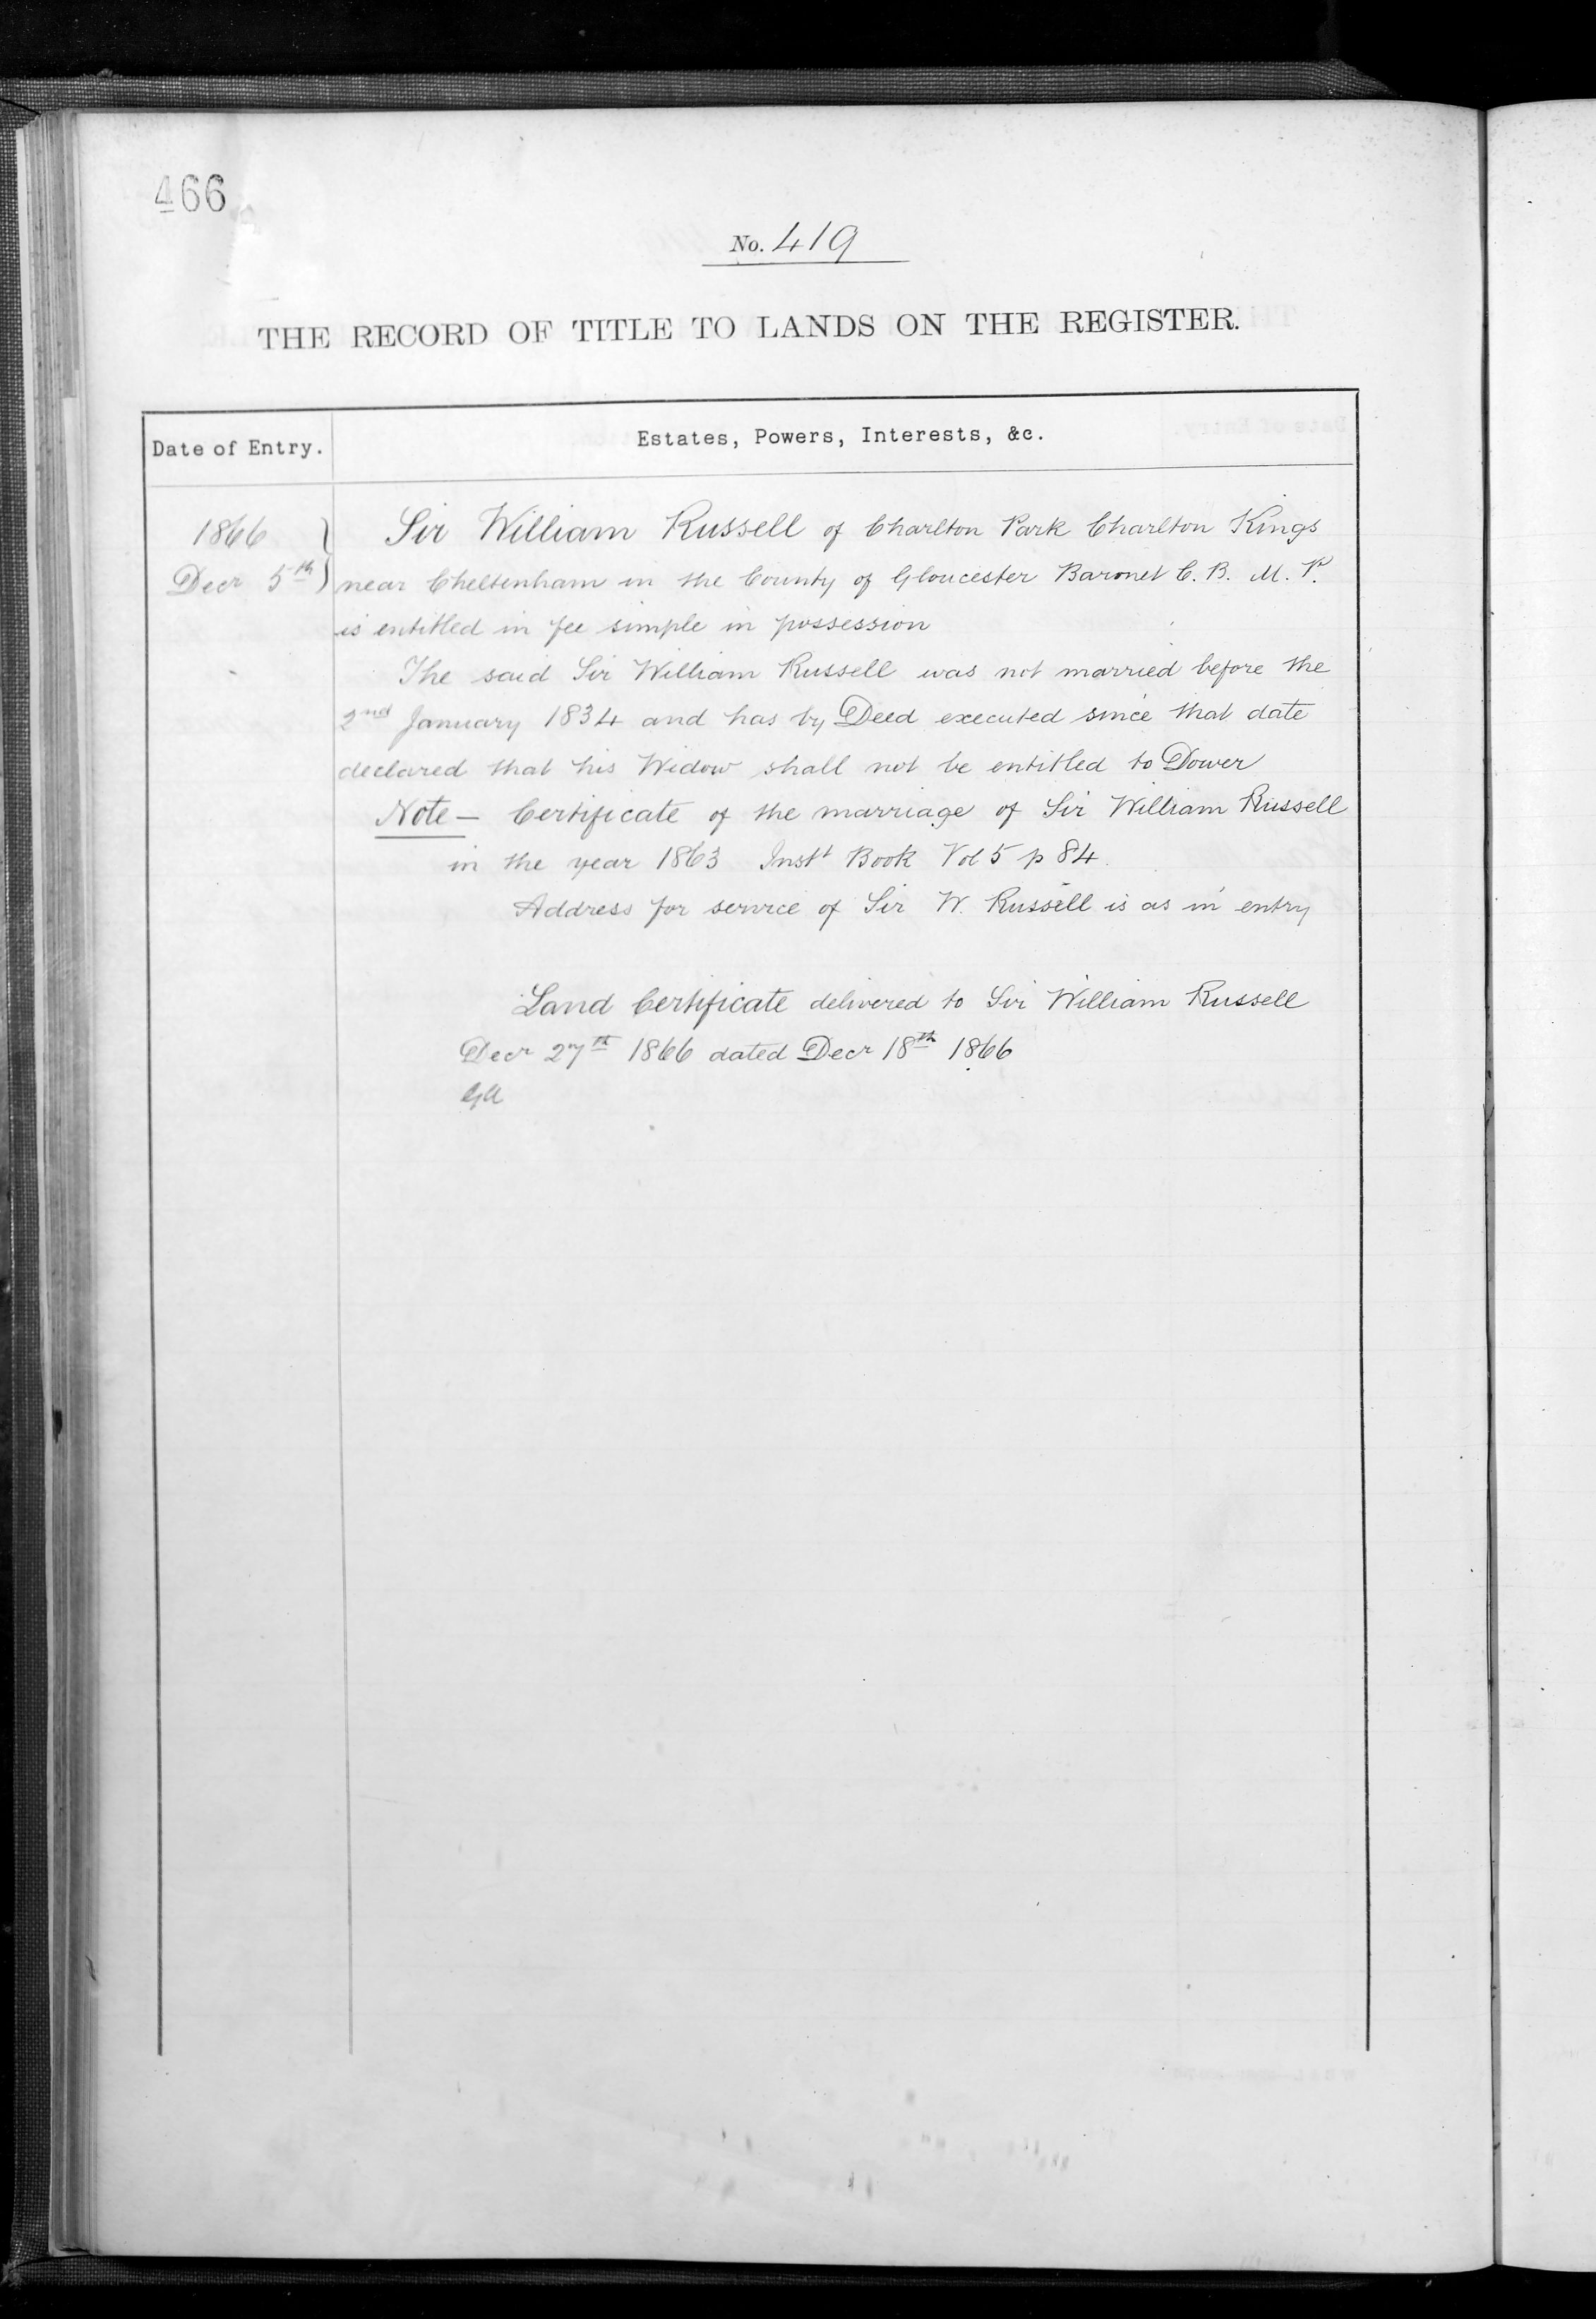 466
No. 419
THE RECORD OF TITLE TO LANDS ON THE REGISTER.
Date of Entry.
Estates, Powers, Interests, &c.
1866
Decr 5th
Sir William Russell of Charlton Park Charlton Kings
near Cheltenham in the County of Gloucester Baronet C. B. M. P.
is entitled in fee simple in possession
The said Sir William Russell was not married before the
2nd January 1834 and has by Deed executed since that date
declared that his Widow shall not be entitled to Dower
Note – Certificate of the marriage of Sir William Russell
in the year 1863 Inst Book Vol 5 p 84.
Address for service of Sir W. Russell is as in entry
Land Certificate delivered to Sir William Russell
Decr 27th 1866 dated Decr 18th 1866